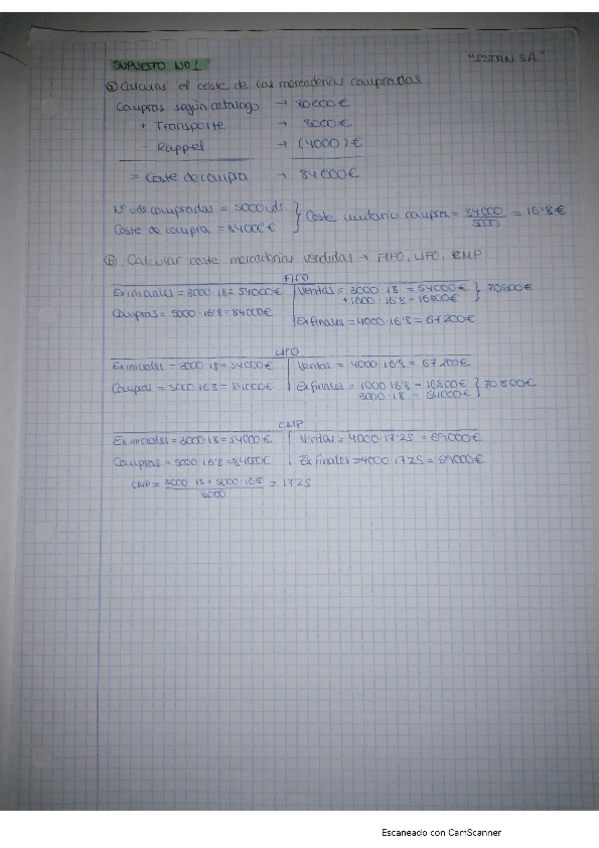 SUPUESTO Nº1 "ISTAN SA"
ⓐ Calcular el coste de las mercaderías compradas
Compras según catálogo → 80000€
+ Transporte → 8000€
- Rappel → (4000)€
= Coste de compra → 84000€
Nº uds compradas = 5000 uds } Coste unitario compra = 84000/5000 = 16'8€
Coste de compra = 84000€
ⓑ Calcular coste mercaderías vendidas → FIFO, LIFO, CMP
FIFO
Ex iniciales = 3000·18 = 54000€ Ventas = 3000·18 = 54000€ } 70800€
+1000·16'8 = 16800€
Compras = 5000·16'8 = 84000€
Ex finales = 4000·16'8 = 67200€
LIFO
Ex iniciales = 3000·18 = 54000€ Ventas = 4000·16'8 = 67200€
Compras = 5000·16'8 = 84000€ Ex finales = 1000·16'8 = 16800€ } 70800€
3000·18 = 54000€
CMP
Ex iniciales = 3000·18 = 54000€ Ventas = 4000·17'25 = 69000€
Compras = 5000·16'8 = 84000€ Ex finales = 4000·17'25 = 69000€
CMP = 3000·18 + 5000·16'8 / 8000 = 17'25
Escaneado con CamScanner